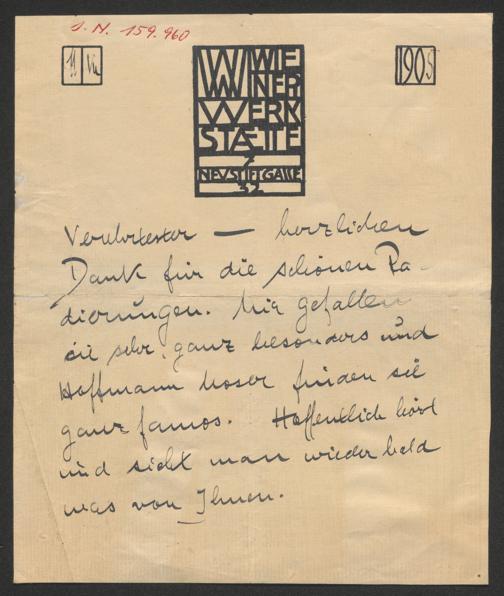 J. N. 159.960
11 VII
1905
WW WIE
NER
WERK
STÆTTE
7
NEUSTIFTGASSE
32
Verehrtester — herzlichen
Dank für die schönen Ra-
dierungen. Mir gefallen
sie sehr, ganz besonders und
Hoffmann Moser finden sie
ganz famos. Hoffentlich hört
und sieht man wieder bald
was von Ihnen.